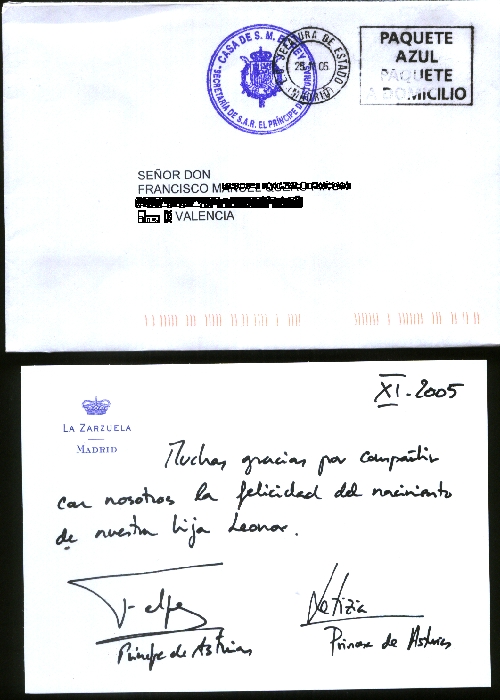 CASA DE S. M. EL REY
SECRETARÍA DE S.A.R. EL PRÍNCIPE DE
JEFATURA DE ESTADO
05
(MADRID)
PAQUETE
AZUL
PAQUETE
A DOMICILIO
SEÑOR DON
FRANCISCO
VALENCIA
XI-2005
LA ZARZUELA
MADRID
Muchas gracias por compartir
con nosotros la felicidad del nacimiento
de nuestra hija Leonor.
Felipe
Príncipe de Asturias
Letizia
Princesa de Asturias